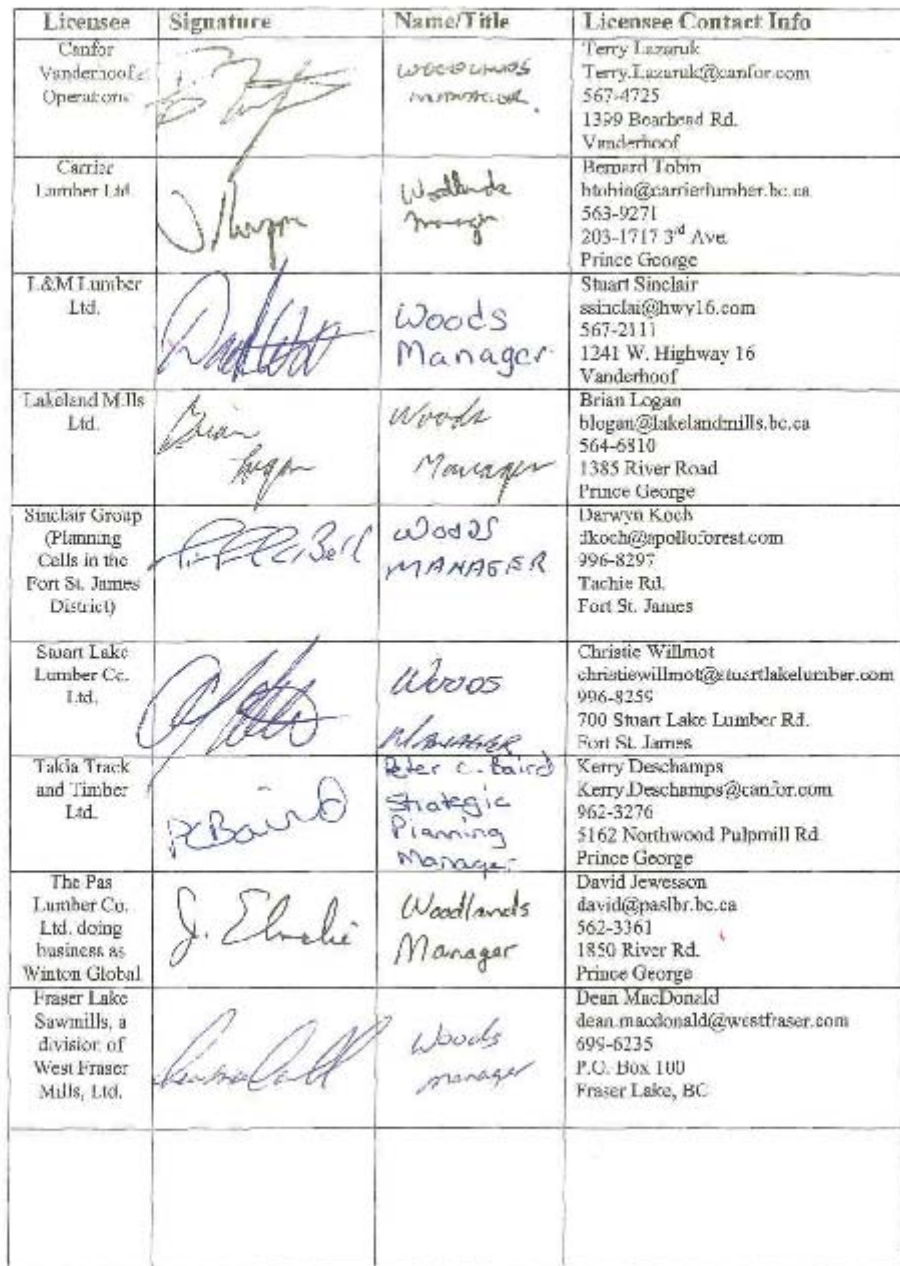 Licensee Signature Name/Title Licensee Contact Info
Canfor
Vanderhoof
Operations
WOODLANDS
MANAGER.
Terry Lazaruk
Terry.Lazaruk@canfor.com
567-4725
1399 Bearhead Rd.
Vanderhoof
Carrier
Lumber Ltd.
Woodlands
Manager
Bernard Tobin
btobin@carrierlumber.bc.ca
563-9271
203-1717 3rd Ave.
Prince George
L&M Lumber
Ltd.
Woods
Manager
Stuart Sinclair
ssinclai@hwy16.com
567-2111
1241 W. Highway 16
Vanderhoof
Lakeland Mills
Ltd.
Brian
Logan
Woods
Manager
Brian Logan
blogan@lakelandmills.bc.ca
564-6810
1385 River Road
Prince George
Sinclair Group
(Planning
Cells in the
Fort St. James
District)
Bell
WOODS
MANAGER
Darwyn Koch
dkoch@apolloforest.com
996-8297
Tachie Rd.
Fort St. James
Stuart Lake
Lumber Co.
Ltd.
WOODS
MANAGER
Christie Willmot
christiewillmot@stuartlakelumber.com
996-8259
700 Stuart Lake Lumber Rd.
Fort St. James
Takla Track
and Timber
Ltd.
PCBaird
Peter C. Baird
Strategic
Planning
Manager
Kerry Deschamps
Kerry.Deschamps@canfor.com
962-3276
5162 Northwood Pulpmill Rd.
Prince George
The Pas
Lumber Co.
Ltd. doing
business as
Winton Global
J. Elmslie
Woodlands
Manager
David Jewesson
david@paslbr.bc.ca
562-3361
1850 River Rd.
Prince George
Fraser Lake
Sawmills, a
division of
West Fraser
Mills, Ltd.
Woods
manager
Dean MacDonald
dean.macdonald@westfraser.com
699-6235
P.O. Box 100
Fraser Lake, BC